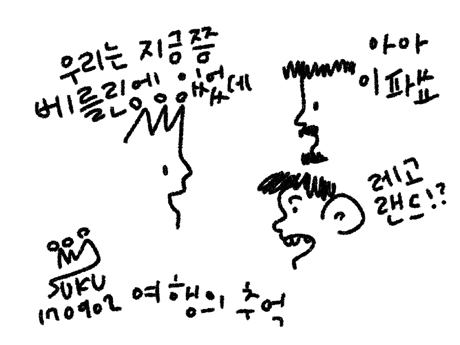 우리는 지금쯤
베를린에 있었
는데
아아
이파쑈
레고
랜드!?
SUKU
170902 여행의 추억